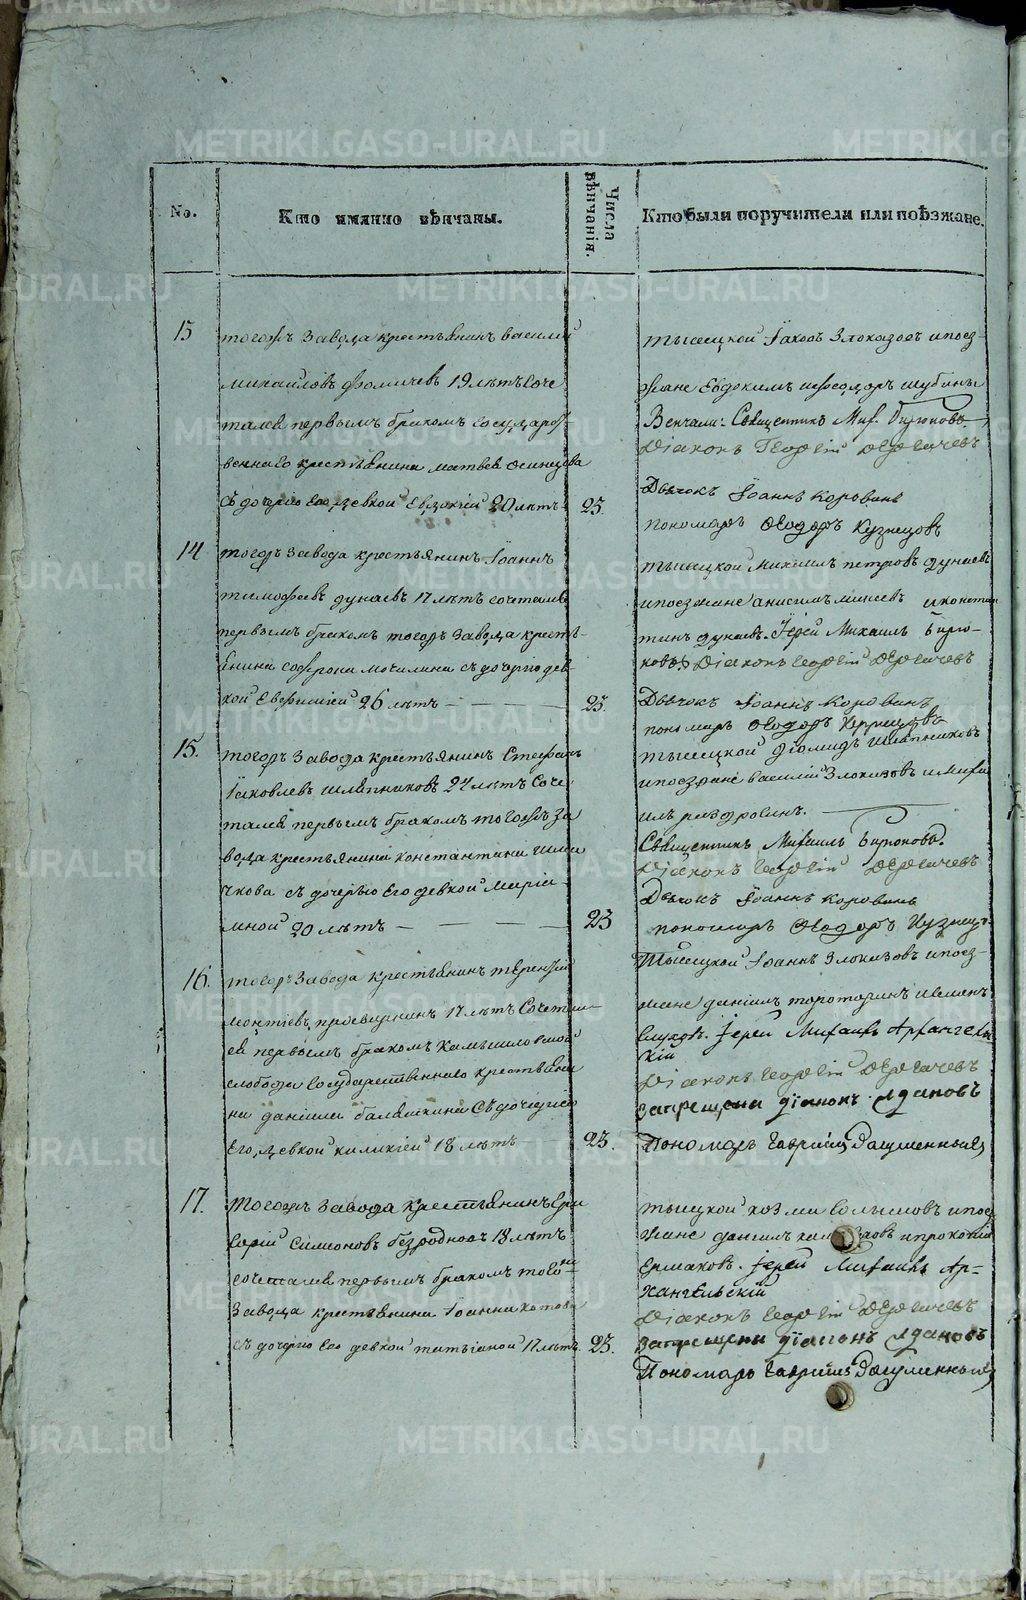 No.
Кто имянно вѣнчаны.
Числа вѣнчанія.
Кто были поручители или поѣзжане.
15
тогожъ завода крестьянинъ василей
михайловъ фомичевъ 19 лѣтъ соче
тался первымъ бракомъ государст
веннаго крестьянина матвея осинцова
съ дочерю его девкой Евдокіей 20 лѣтъ
23.
тысецкой Іаковъ Злоказовъ ипоез-
жане Евдокимъ ифеодоръ шубины
Венчали: Священникъ Мих. Бирюковъ
Діаконъ Георгій Дерягачевъ
Дьячокъ Іоаннъ Коровинъ
пономарь Ѳеодоръ Кузнецовъ
14
тогожъ завода крестьянинъ Іоаннъ
тимофеевъ дунаевъ 17 лѣтъ сочетался
первымъ бракомъ тогожъ завода кресть-
янина софрона могилина съ дочерю дев
кой Евфиміей 26 лѣтъ
23.
тысецкой Михаилъ петровъ дунаевъ
ипоезжане анисимъ минеевъ иконстан
тинъ дунаевъ. Іерей Михаилъ Бирю-
ковъ Діаконъ Георгій Дерягачевъ
Дьячокъ Іоаннъ Коровинъ
пономарь Ѳеодоръ Кузнецовъ
15.
тогожъ завода крестьянинъ Стефанъ
Іаковлевъ шляпниковъ 24 лѣтъ Соче-
тался первымъ бракомъ тогожъ За
вода крестьянина константина
чкова съ дочерью Его девкой Маріа-
мной 20 лѣтъ
23
тысецкой діомидъ шляпниковъ
ипоезжане василій Злоказовъ иМиха
илъ
Священникъ Михаилъ Бирюковъ.
Діаконъ Георгій Дерягачевъ
Дьячокъ Іоаннъ Коровинъ
пономарь Ѳеодоръ Кузнец
16.
тогожъ завода крестьянинъ терентій
леонтіевъ просвирнинъ 17 лѣтъ Сочетал
ся первымъ бракомъ Камышловской
слободы государственнаго крестьяни
на даніила балашкина Съ дочерію
Его, девкой киликіей 18 лѣтъ
23.
Тысецкой Іоаннъ Злоказовъ ипоез-
жане даніилъ исеменъ
Іерей Михаилъ Архангель
скій
Діаконъ Георгій Дерягачевъ
Запрещены діаконъ ждановъ
Пономарь Гавріилъ
17.
Тогожъ завода крестьянинъ Гри
горій Симеоновъ безродновъ 18 лѣтъ
сочетался первымъ бракомъ того
Завода крестьянина Іоанна котова
съ дочерю его девкой татьяной 17 лѣтъ
23.
тысецкой козма ипоез
жане данилъ ипрокопій
Ермаковъ. Іерей Михаилъ Ар-
хангельскій
Діаконъ Георгій Дерягачевъ
запрещены діаконъ ждановъ
Пономарь Гавріилъ
METRIKI.GASO-URAL.RU